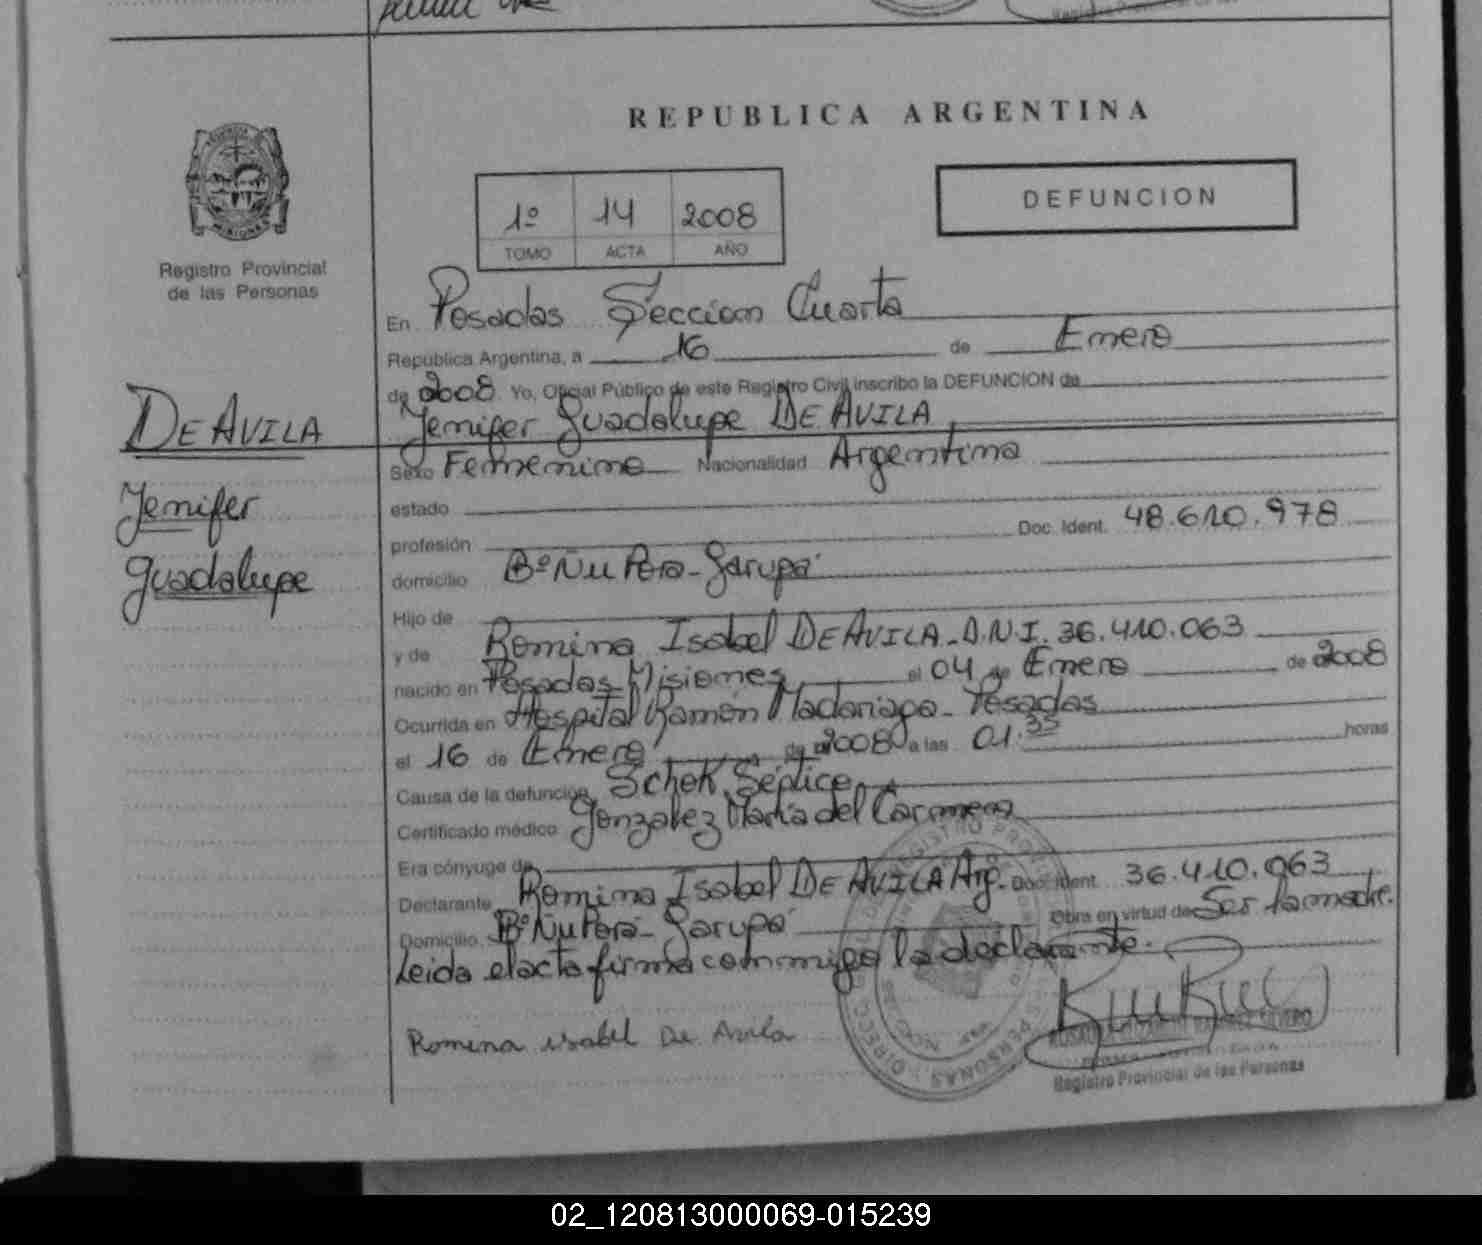 REPUBLICA ARGENTINA
1º 14 2008
TOMO ACTA AÑO
DEFUNCION
Registro Provincial
de las Personas
En Posadas Seccion Cuarta
República Argentina, a 16 de Enero
de 2008 Yo, Oficial Público de este Registro Civil inscribo la DEFUNCION de
Jenifer Guadalupe DE AVILA
DE AVILA
Jenifer
Guadalupe
Sexo Femenino Nacionalidad Argentina
estado
profesión Doc. Ident. 48.610.978
domicilio Bº Ñu Pora - Garupá
Hijo de
y de Romina Isabel DE AVILA - D.N.I. 36.410.063
nacido en Posadas Misiones el 04 de Enero de 2008
Ocurrida en Hospital Ramón Madariaga - Posadas
el 16 de Enero de 2008 a las 01.35 horas
Causa de la defunción Schok Séptico
Certificado médico Gonzalez María del Carmen
Era cónyuge de
Declarante Romina Isabel DE AVILA Arg. Doc. Ident. 36.410.063
Domicilio Bº Ñu Porá - Garupá Obra en virtud de Ser la madre.
Leida el acta firma conmigo la declarante.
Romina isabel De Avila
Registro Provincial de las Personas
02_120813000069-015239